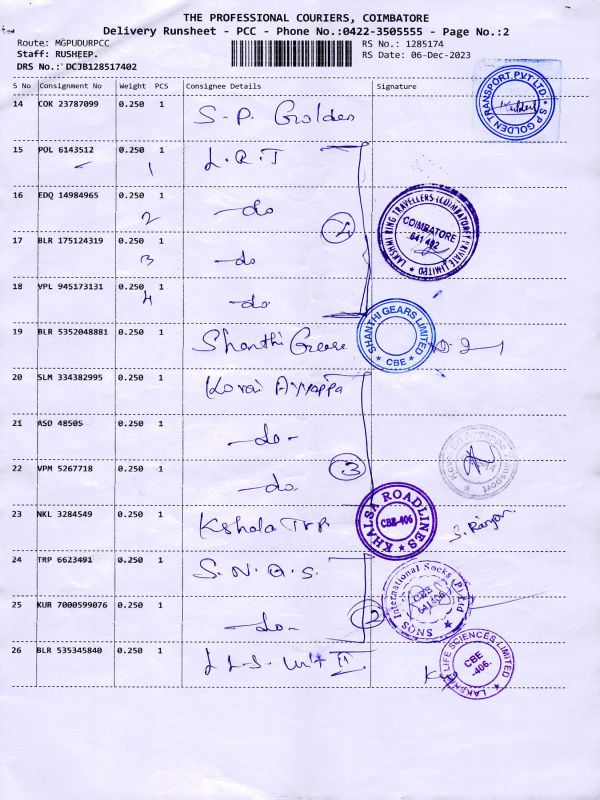 THE PROFESSIONAL COURIERS, COIMBATORE
Delivery Runsheet - PCC - Phone No.:0422-3505555 - Page No.:2
Route: MGPUDURPCC
RS No.: 1285174
Staff: RUSHEEP.
RS Date: 06-Dec-2023
DRS No.: DCJB128517402
S No Consignment No Weight PCS Consignee Details Signature
14 COK 23787099 0.250 1 S.P. Golden
S P GOLDEN TRANSPORT PVT.LTD.
15 POL 6143512 0.250 1 L.R.T
1
16 EDQ 14984965 0.250 1 -do
2
4
LAKSHMI RING TRAVELLERS (COIMBATORE) PRIVATE LIMITED
COIMBATORE
641 402
17 BLR 175124319 0.250 1 -do
3
18 VPL 945173131 0.250 1 -do.
4
19 BLR 5352048881 0.250 1 Shanthi Gease
SHANTHI GEARS LIMITED
CBE
20 SLM 334382995 0.250 1 Korai Ayyappa
21 ASD 48505 0.250 1 -do-
3
22 VPM 5267718 0.250 1 -do.
23 NKL 3284549 0.250 1 Kshala TRP
KHALSA ROADLINES
CBE-406
S. Ranjan
24 TRP 6623491 0.250 1 S.N.Q.S.
2
SNQS International Socks (P) Ltd
CBE
641406
25 KUR 7000599076 0.250 1 -do-
26 BLR 535345840 0.250 1 LLS-unit II
LAKSHMI LIFE SCIENCES LIMITED
CBE
-406.